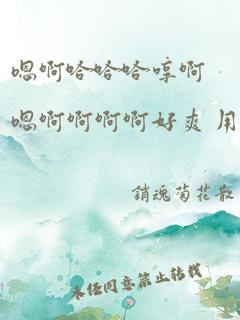 嗯啊哈哈哈哼啊
嗯啊啊啊啊好爽 用
銷魂菊花散
未经同意禁止转载